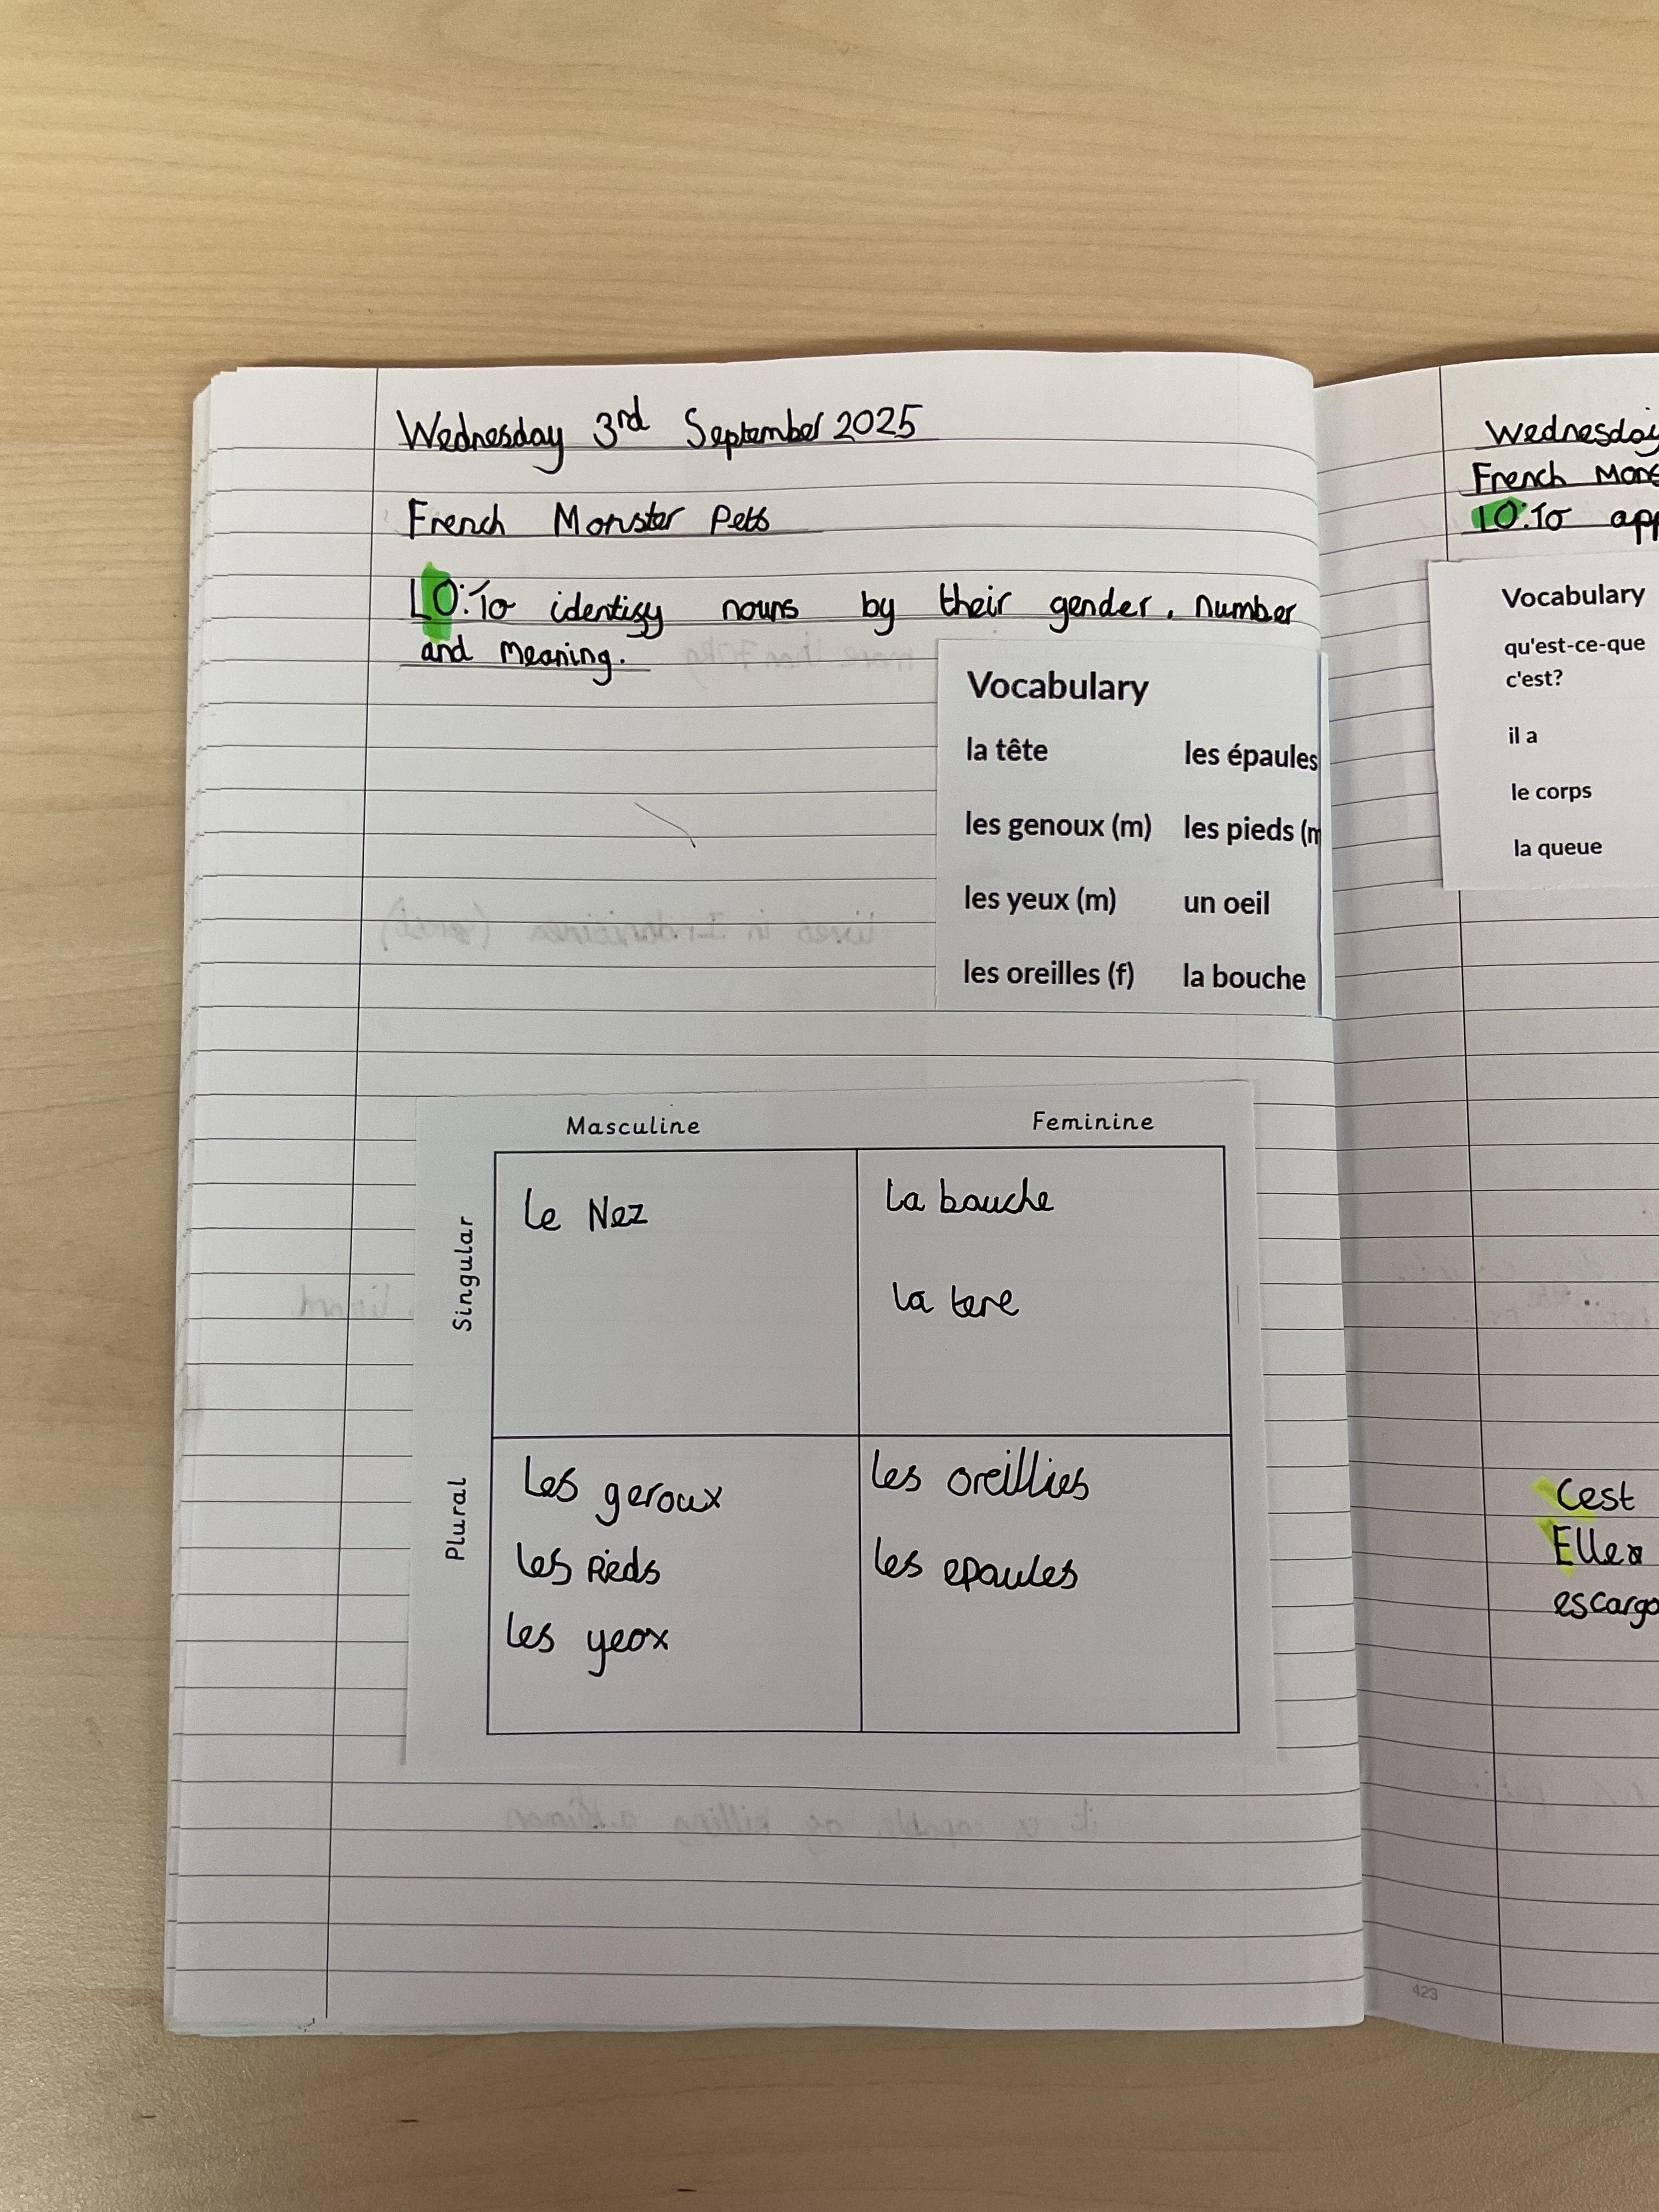 Wednesday 3rd September 2025
French Monster Pets
LO: To identify nouns by their gender, number
and meaning.
Vocabulary
la tête les épaules
les genoux (m) les pieds (m
les yeux (m) un oeil
les oreilles (f) la bouche
Masculine Feminine
Singular
le Nez
la bouche
la tere
Plural
les geroux
les Pieds
les yeox
les oreillies
les epaules
Wednesday
French Mons
LO: To app
Vocabulary
qu'est-ce-que
c'est?
il a
le corps
la queue
Cest
Elle a
escargo
423